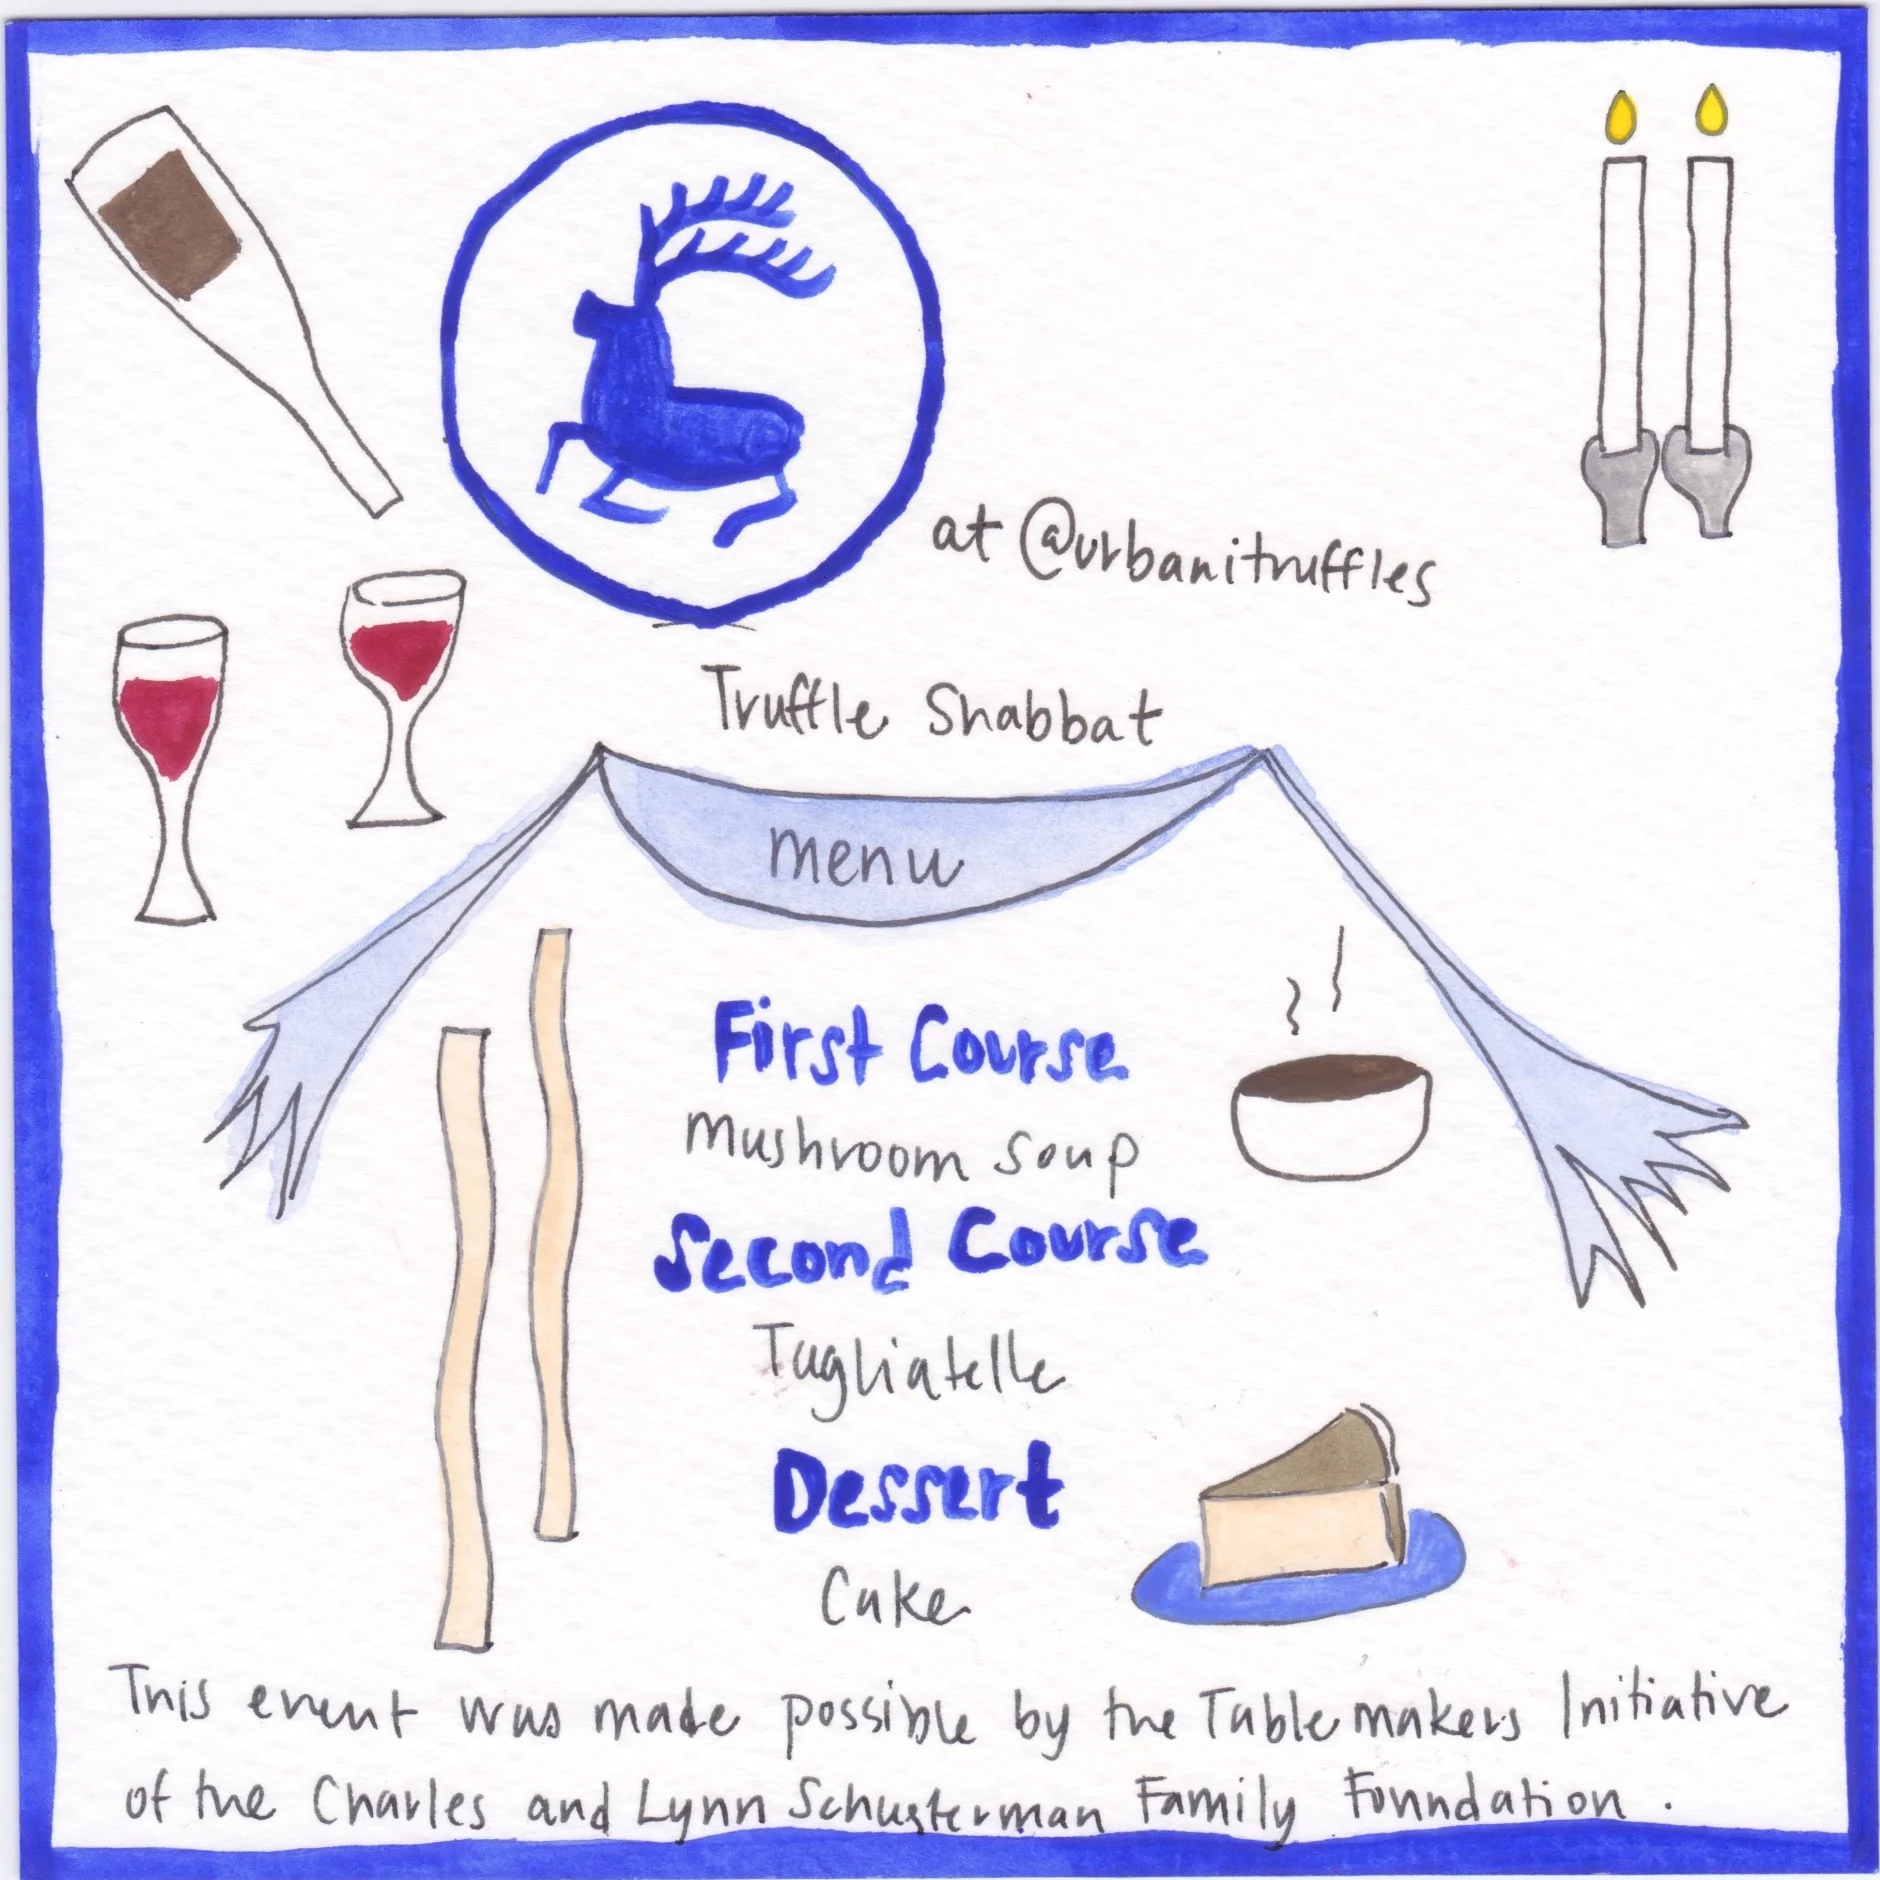 at @urbanitruffles
Truffle Shabbat
menu
First Course
Mushroom Soup
Second Course
Tagliatelle
Dessert
Cake
This event was made possible by the Tablemakers Initiative
of the Charles and Lynn Schusterman Family Foundation.